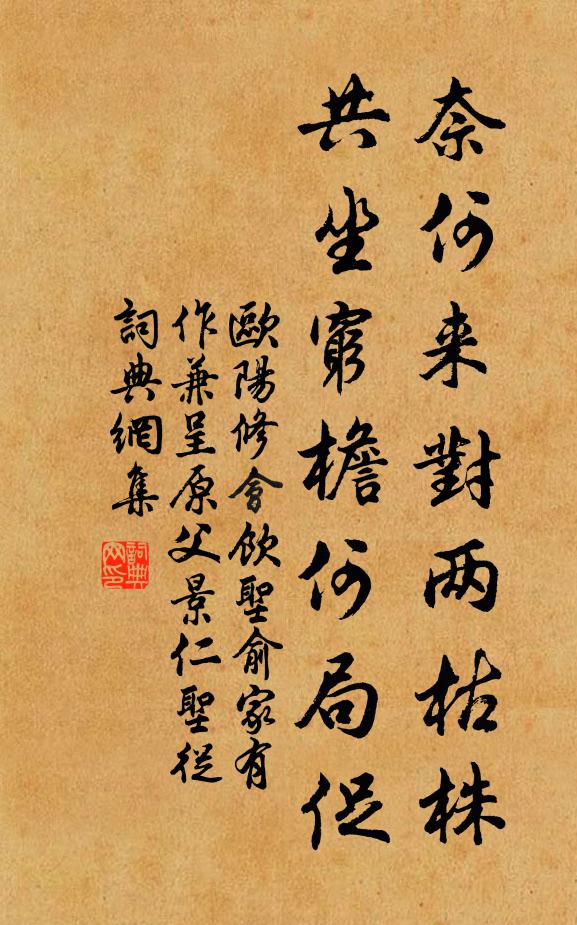 奈何来對两枯株
共坐窮檐何局促
歐陽修會飲聖俞家有
作兼呈原父景仁聖從
詞典網集
詞典
网印